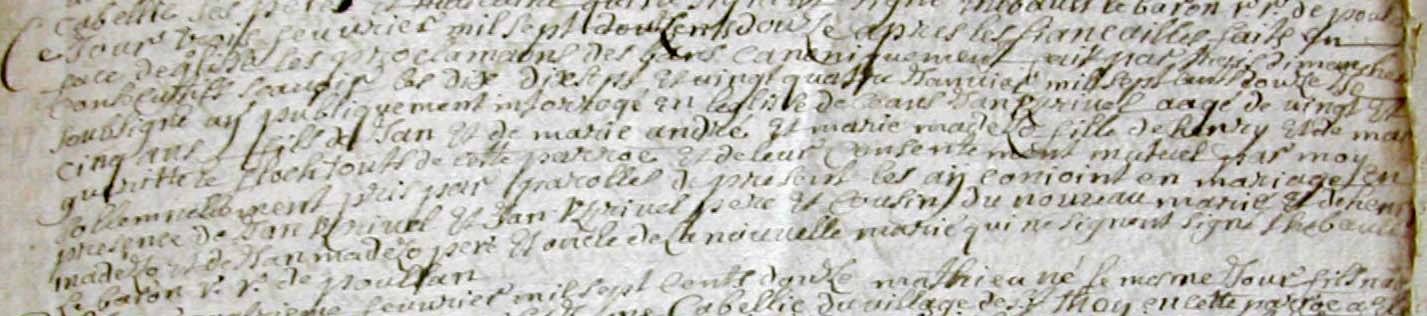 Cabellic ses pere et maraine qui ne signent signé Thebault le baron r. r. de poul
Ce Jour troise feuvrier mil sept doucents douze apres les fiancailles faits en
face deglise les proclamaons des bans canoniquement fait par trois dimanches
Consecutifs scauoir les dix dixsept et vingt quatre Januier mil sept cent douze Je
soubsigné aÿ publiquement interrogé en leglise de ceans Jan Kprivel aagé de vingt et
cinq ans fils de Jan et de marie andré et marie madezo fille de henry et de mar
guerittere floch touts de cette parroe et deleur consentement mutuel par moy
sollemnellement pris par parolles de present les aÿ conjoint en mariage en
presence de Jan Kprivel et Jan Kprivel pere et Cousin du nouveau marié et de henry
madezo et de Jan madezo pere et oncle de la nouvelle marié qui ne signent signé Thebault
le baron r. r. de poullan
feuvrier mil sept cents douze mathieu né le mesme Jour fils na
Cabellic du village de Thoy en cette parroe